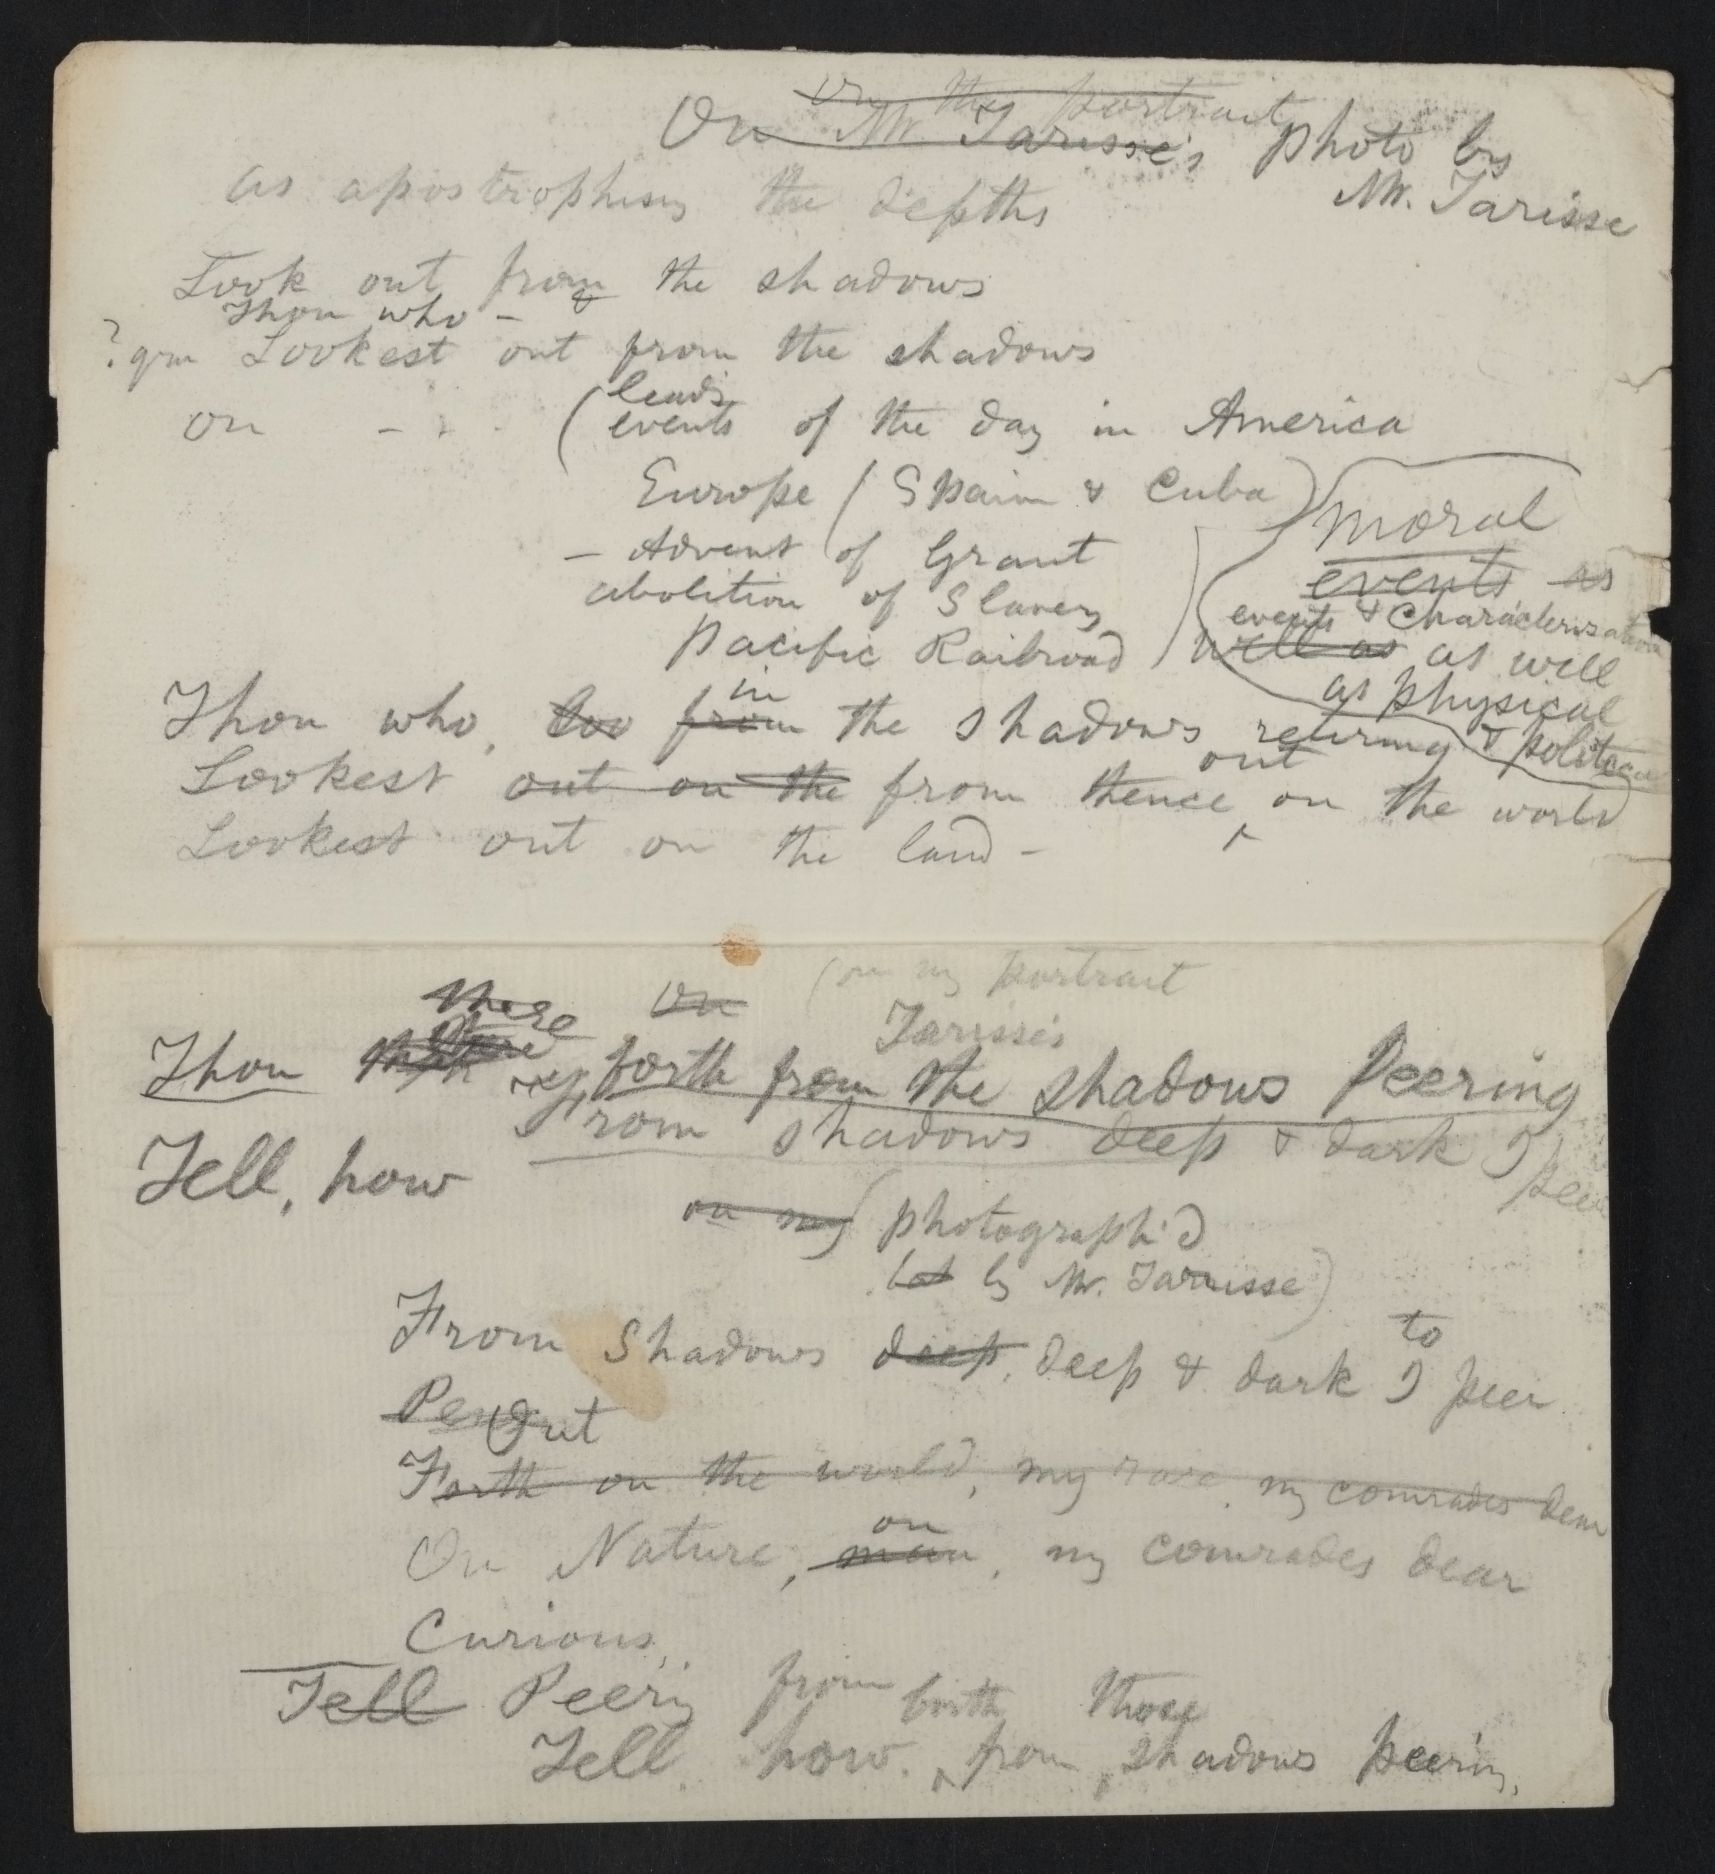 on the portrait
On Mr Tarisse's photo by
Mr. Tarisse
as apostrophising the depths
Look out from the shadows
Thou who – &
? qm Lookest out from the shadows
on – - - (leads
events of the day in America
Europe (Spain & Cuba)
– Advent of Grant
abolition of Slavery
Pacific Railroad)
moral
events as
events & Characterization
well as as well
as physical
& political
in
Thou who, loo from the shadows retiring
out
Lookest out on the from thence ^ on the world
Lookest out on the land –
(on my portrait
Tarisse's
there On
Thou forth from the shadows Peering
From shadows deep & dark I
peer
Tell, how
on my (photograph'd
by Mr. Tarisse)
to
From Shadows deep, deep & dark I peer
Out
Forth on the world, my race, my comrades dear
on
On Nature, man, my comrades dear
Curious,
Tell Peering from forth those
Tell how ^ from ^ shadows peering,